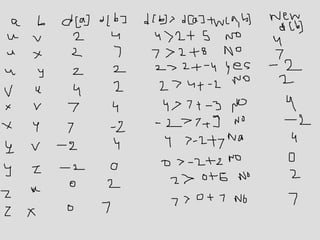 a b d[a] d[b] d[b] > d[a]+w(a,b) New d[b]
u v 2 4 4>2+5 NO 4
u x 2 7 7>2+8 NO 7
u y 2 2 2>2+-4 yes -2
V u 4 2 2>4+-2 NO 2
x v 7 4 4>7+-3 NO 4
x y 7 -2 -2>7+9 NO -2
y v -2 4 4>-2+7 No 4
y z -2 0 0>-2+2 NO 0
z u 0 2 2>0+6 NO 2
z x 0 7 7>0+7 No 7